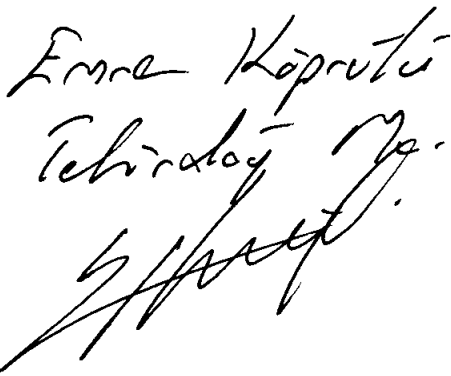 Emre Köprülü
Tekirdağ Mv.